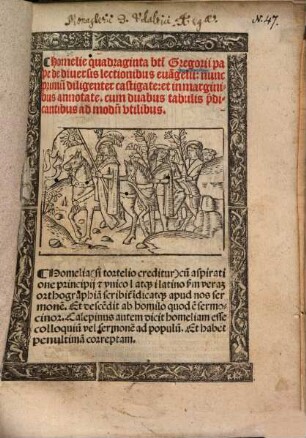 Monasterii S. Udalrici
N. 47.
Homelie quadraginta bti Gregorii pa
pe de diversis lectionibus evãgelii: nunc
primũ diligenter castigate: et in margini
bus annotate. cum duabus tabulis p̃di
cantibus ad modũ vtilibus.
Homelia (si tortelio creditur) cũ aspirati
one principij ⁊ vnico l atq̃ i latino s̃m veraȝ
orthographiã scribit̃ idẽ atq̃ apud nos ser
monẽ. Et descẽdit ab homilo quod ẽ sermo
cinor. Calepinus autem dicit homeliam esse
colloquiũ vel sermonẽ ad populũ. Et habet
penultimã correptam.